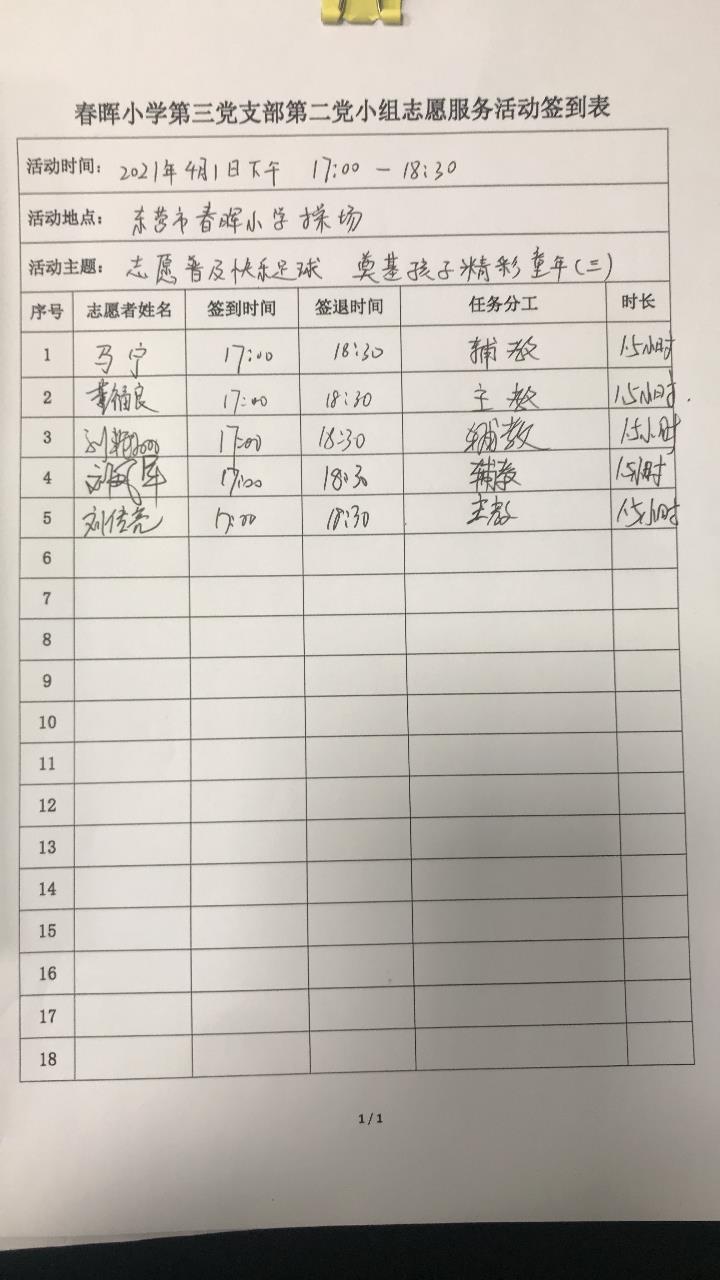 春晖小学第三党支部第二党小组志愿服务活动签到表
活动时间： 2021年4月1日下午 17:00 — 18:30
活动地点： 东营市春晖小学操场
活动主题： 志愿普及快乐足球 奠基孩子精彩童年(三)
序号 志愿者姓名 签到时间 签退时间 任务分工 时长
1 马宁 17:00 18:30 辅教 1.5小时
2 董福良 17:00 18:30 主教 1.5小时.
3 刘 17:00 18:30 辅教 1.5小时
4 17:00 18:30 辅教 1.5小时
5 刘传亮 17:00 18:30 主教 1.5小时
6
7
8
9
10
11
12
13
14
15
16
17
18
1 / 1